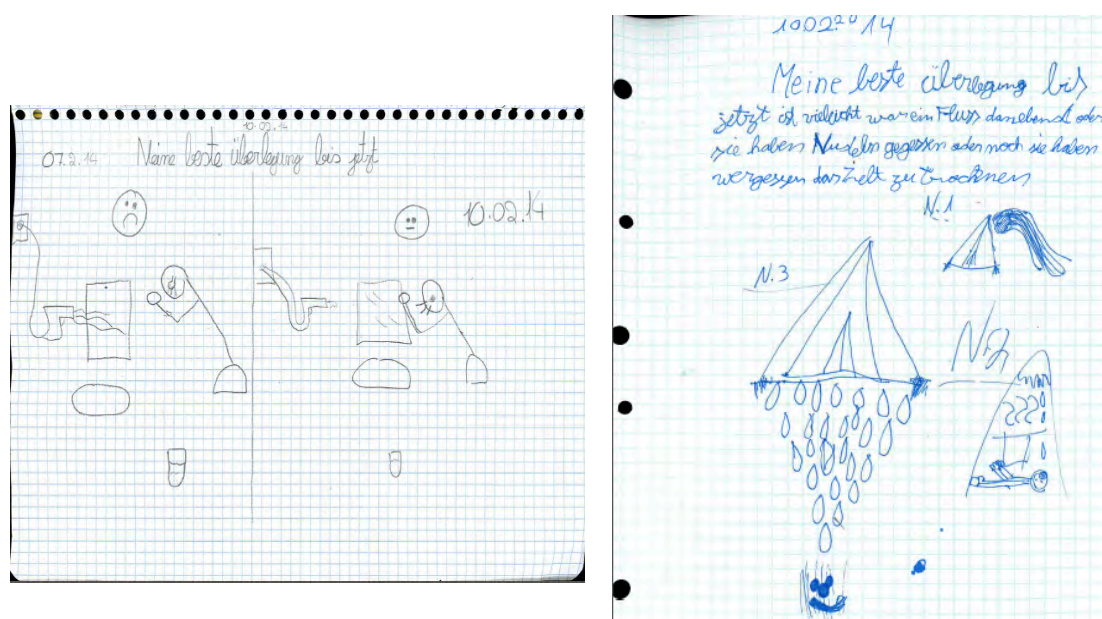 10.02.14
07.2.14 Meine beste überlegung bis jetzt
10.02.14
10.02.2014
Meine beste überlegung bis
jetzt ist vieleicht war ein Fluss daneben oder
sie haben Nudeln gegessen oder noch sie haben
vergessen das Zelt zu trocknen
N.1
N.3
N.2